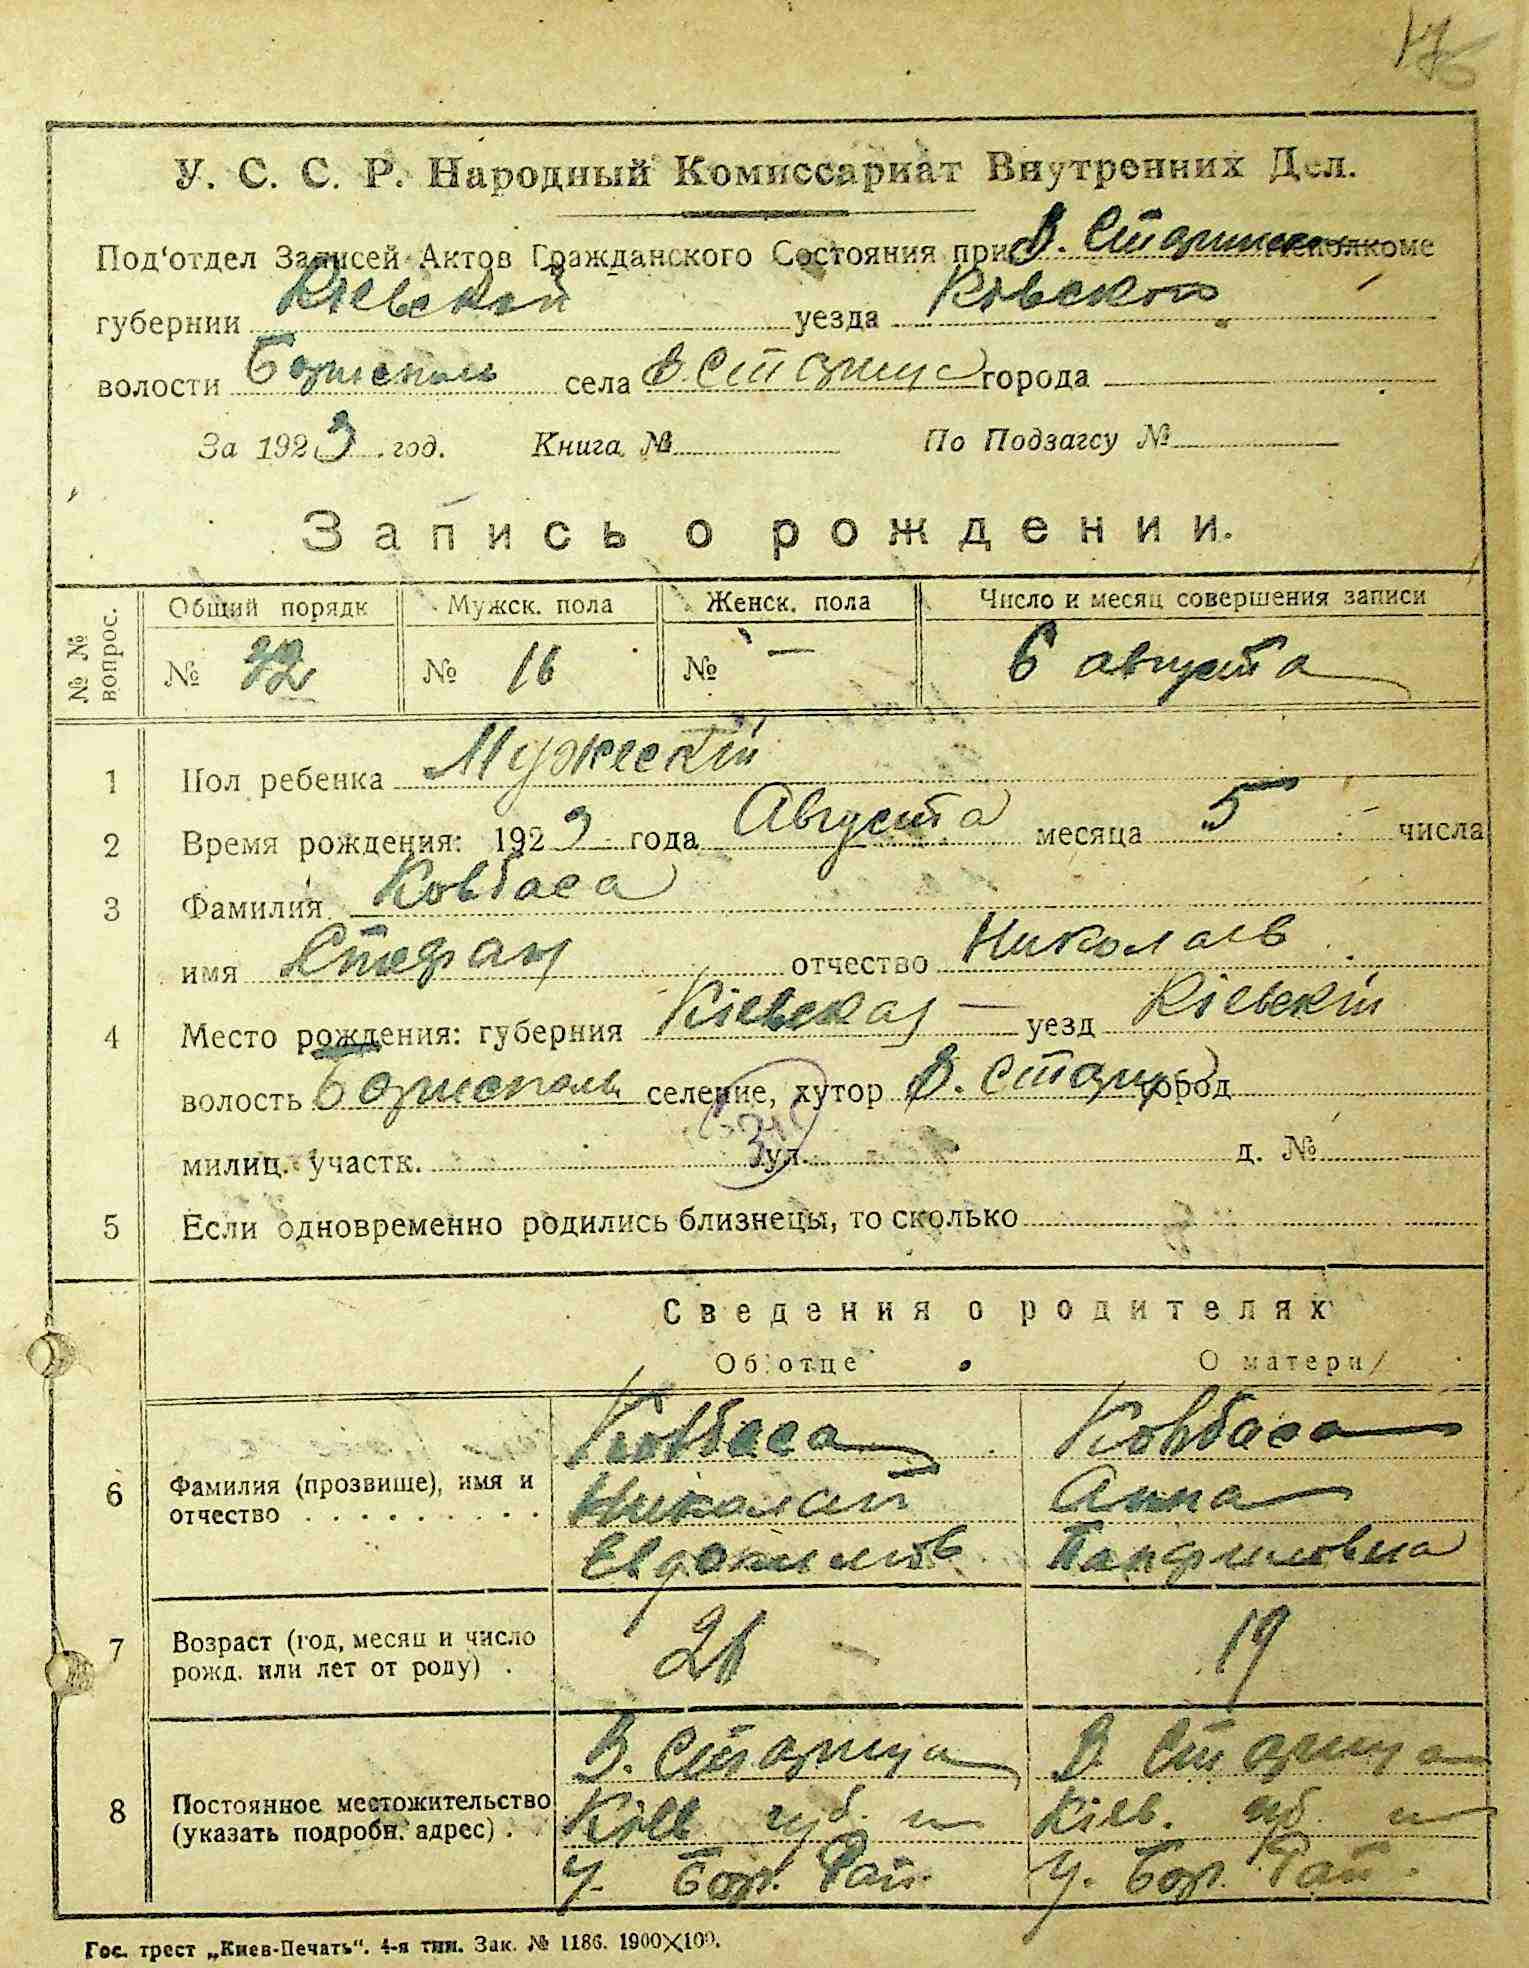 У. С. С. Р. Народный Комиссариат Внутренних Дел.
Под'отдел Записей Актов Гражданского Состояния при В. Старицком исполкоме
губернии Кіевской уезда Кіевского
волости Борисполь села В. Старица города
За 1923 год. Книга № По Подзагсу №
Запись о рождении.
№№ вопрос. Общий порядк Мужск. пола Женск. пола Число и месяц совершения записи
№ 32 № 16 № — 6 августа
1 Пол ребенка Мужескій
2 Время рождения: 1923 года Августа месяца 5 числа
3 Фамилия Ковбаса
имя Стефан отчество Николаев
4 Место рождения: губерния Кіевская уезд Кіевскій
волость Борисполь селение, хутор В. Старица город
милиц. участк. ул. д. №
5 Если одновременно родились близнецы, то сколько
Сведения о родителях
Об отце О матери
Ковбаса Ковбаса
6 Фамилия (прозвище), имя и отчество Николай Анна
Евдокимов Панфиловна
7 Возраст (год, месяц и число рожд. или лет от роду) 26 19
В. Старица В. Старица
8 Постоянное местожительство (указать подробн. адрес) Кіев губ. и Кіев. губ. и
у. Бор. Рай. у. Бор. Рай.
Гос. трест „Киев-Печать“. 4-я тип. Зак. № 1186. 1900×100.